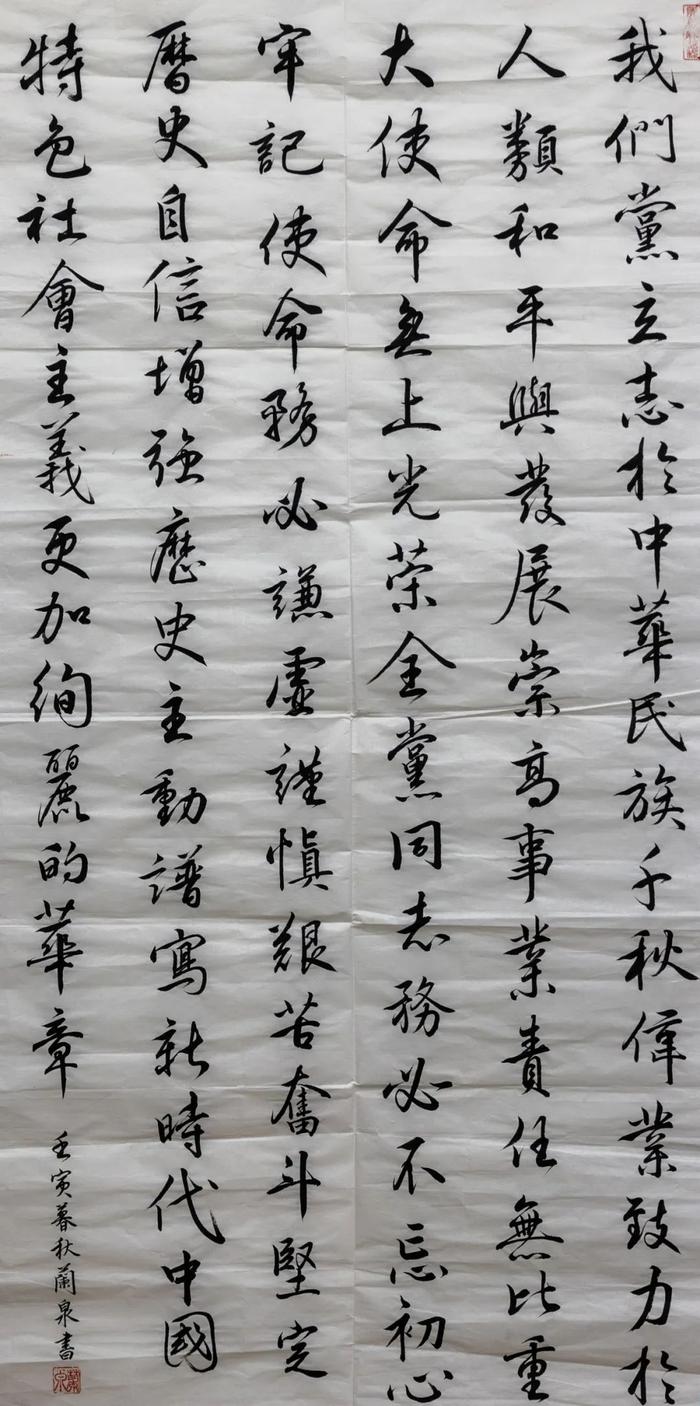 我們黨立志於中華民族千秋偉業致力於
人類和平與發展崇高事業責任無比重
大使命無上光荣全黨同志務必不忘初心
牢記使命務必謙虛謹慎艱苦奮斗堅定
曆史自信增強歷史主動譜寫新時代中國
特色社會主義更加絢麗的華章
壬寅暮秋蘭泉書